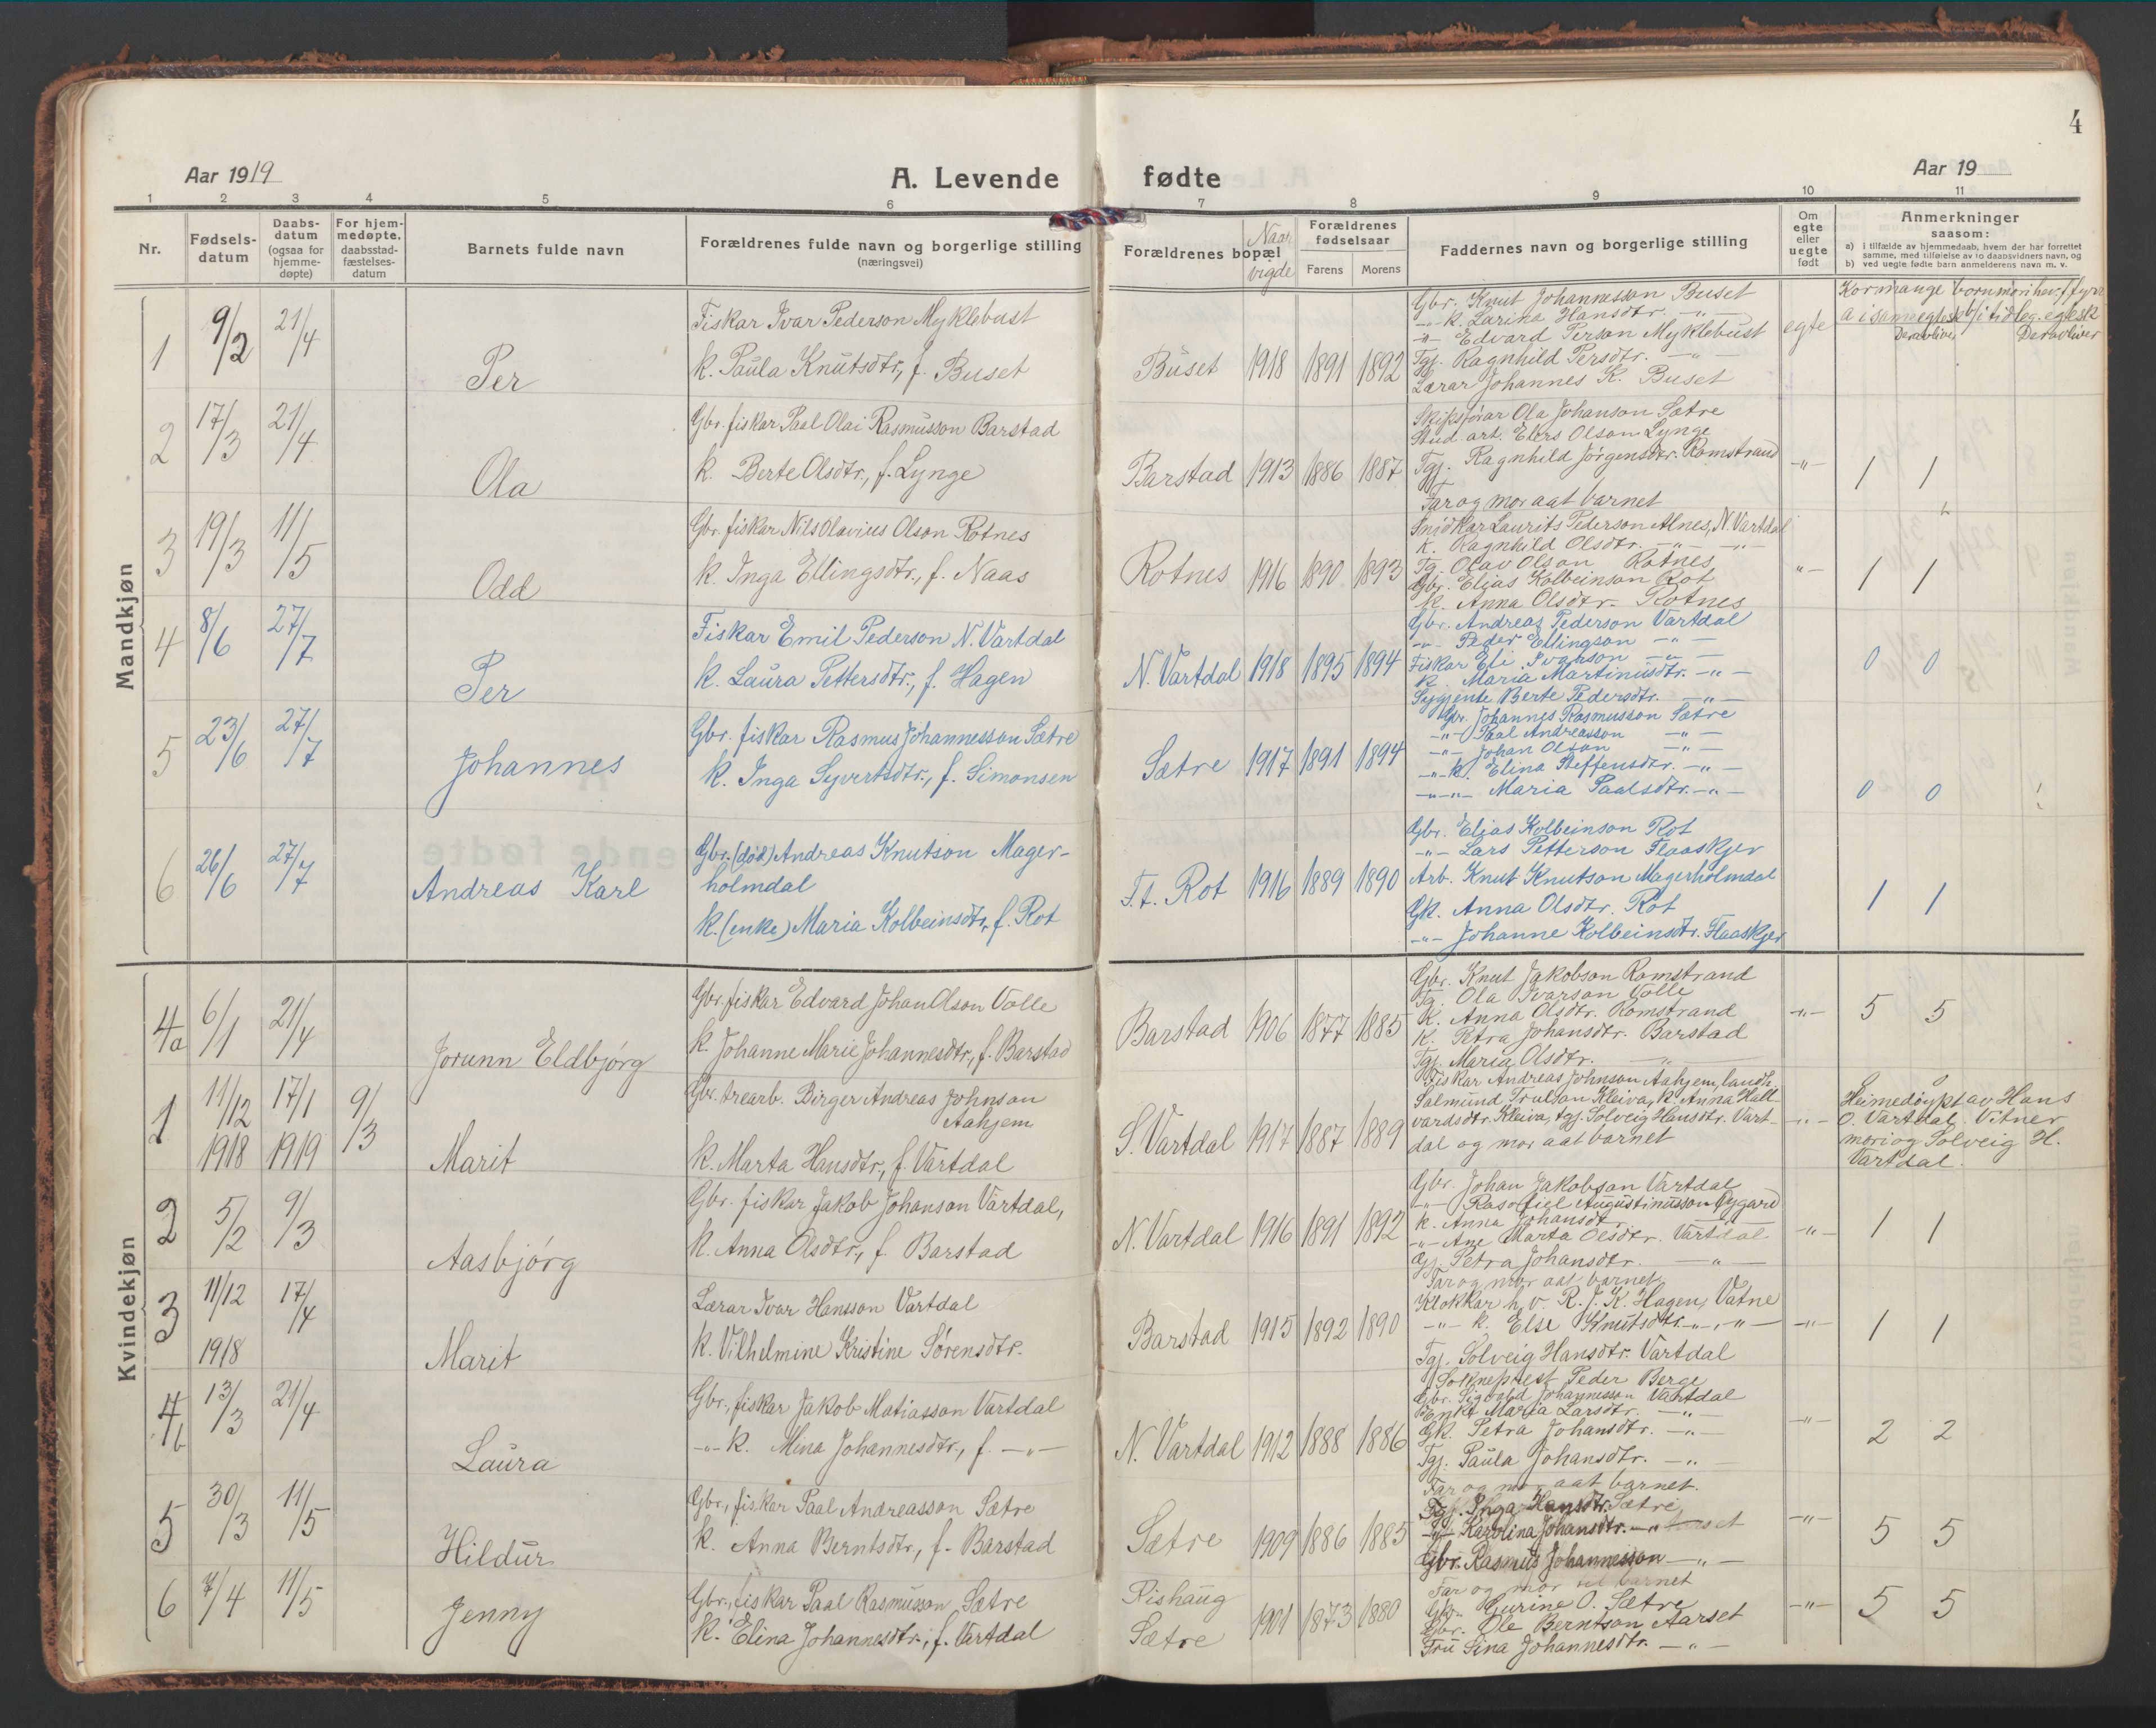 4
Aar 1919
A. Levende
fødte
Aar 19
1 2 3 4 5 6 7 8 9 10 11
Nr.
Fødsels-
datum
Daabs-
datum
(ogsaa for
hjemme-
døpte)
For hjem-
medøpte,
daabsstad-
fæstelses-
datum
Barnets fulde navn
Forældrenes fulde navn og borgerlige stilling
(næringsvei)
Forældrenes bopæl
Naar
vigde
Forældrenes
fødselsaar
Farens
Morens
Faddernes navn og borgerlige stilling
Om
egte
eller
uegte
født
Anmerkninger
saasom:
a) i tilfælde av hjemmedaab, hvem der har forrettet
samme, med tilføielse av to daabsvidners navn, og
b) ved uegte fødte barn anmelderens navn m. v.
Kor mange born mori hev f fyrr
a i same egtesk b/i tidleg. egtesk
Derav liver
Derav liver
Mandkjøn
1
9/2
21/4
Per
Fiskar Ivar Pederson Myklebust
k. Paula Knutsdtr., f. Buset
Buset
1918
1891
1892
Gbr. Knut Johannesson Buset
-"- k. Larina Hansdtr. -"-
-"- Edvard Person Myklebust
Tgj. Ragnhild Persdtr. -"-
Lærar Johannes K. Buset
egte
2
17/3
21/4
Ola
Gbr. fiskar Paal Olai Rasmusson Barstad
k. Berte Olsdtr., f. Lynge
Barstad
1913
1886
1887
Skipsførar Ola Johanson Sætre
Stud. art. Elers Olson Lynge
Tgj. Ragnhild Jørgensdtr. Romstrand
Far og mor aat barnet
-"-
1 1
3
19/3
11/5
Odd
Gbr. fiskar Nils Olavius Olson Rotnes
k. Inga Ellingsdtr., f. Naas
Rotnes
1916
1890
1893
Snidkar Laurits Pederson Alnes, N. Vartdal
k. Ragnhild Olsdtr. -"- -"-
Tg. Olav Olson Rotnes
Gbr. Elias Kolbeinson Rot
k. Anna Olsdtr. Rotnes
-"-
1 1
4
8/6
27/7
Per
Fiskar Emil Pederson N. Vartdal
k. Laura Pettersdtr., f. Hagen
N. Vartdal
1918
1895
1894
Gbr. Andreas Pederson Vartdal
-"- Peder Ellingson -"-
Fiskar Eli Ivarson -"-
k. Maria Martinusdtr. -"-
Sygjente Berte Pedersdtr. -"-
0 0
5
23/6
27/7
Johannes
Gbr. fiskar Rasmus Johannesson Sætre
k. Inga Syvertsdtr., f. Simonsen
Sætre
1917
1891
1894
Gbr. Johannes Rasmusson Sætre
-"- Paal Andreasson -"-
-"- Johan Olson -"-
-"- k. Elina Steffensdtr. -"-
-"- -"- Maria Paalsdtr. -"-
0 0
6
26/6
27/7
Andreas Karl
Gbr. (død) Andreas Knutson Mager-
holmdal
k. (enke) Maria Kolbeinsdtr., f. Rot
F.t. Rot
1916
1889
1890
Gbr. Elias Kolbeinson Rot
-"- Lars Petterson Flaaskjer
Arb. Knut Knutson Magerholmdal
Gk. Anna Olsdtr. Rot
-"- Johanne Kolbeinsdtr. Flaaskjer
1 1
Kvindekjøn
4a
6/1
21/4
Jorunn Eldbjørg
Gbr. fiskar Edvard Johan Olson Volle
k. Johanne Marie Johannesdtr., f. Barstad
Barstad
1906
1877
1885
Gbr. Knut Jakobson Romstrand
Tg. Ola Ivarson Volle
k. Anna Olsdtr. Romstrand
k. Petra Johansdtr. Barstad
Tgj. Maria Olsdtr. -"-
-"-
5 5
1
11/12 1918
17/1 1919
9/3
Marit
Gbr. trearb. Birger Andreas Johnson
Aahjem
k. Marta Hansdtr., f. Vartdal
S. Vartdal
1917
1887
1889
Fiskar Andreas Johnson Aahjem, landh.
Salmund Trulson Kleiva, k. Anna Hall-
vardsdtr. Kleiva, tgj. Solveig Hansdtr. Vart-
dal og mor aat barnet
-"-
0
Heimedøypt av Hans
O. Vartdal. Vitner
mori og Solveig H.
Vartdal.
2
5/2
9/3
Aasbjørg
Gbr. fiskar Jakob Johanson Vartdal,
k. Anna Olsdtr., f. Barstad
N. Vartdal
1916
1891
1892
Gbr. Johan Jakobson Vartdal
-"- Rasofiel Augustinusson Nygard
k. Anna Johansdtr. -"-
-"- Ane Marta Olsdtr. Vartdal
Gj. Petra Johansdtr. -"-
Far og mor aat barnet
-"-
1 1
3
11/12 1918
17/4
Marit
Lærar Ivar Hansson Vartdal
k. Vilhelmine Kristine Sørensdtr.
Barstad
1915
1892
1890
Klokkar h. v. R. J. K. Hagen, Vatne
-"- k. Else Knutsdtr. -"- -"-
Tgj. Solveig Hansdtr. Vartdal
Sokneprest Peder Berge
-"-
1 1
4b
13/3
21/4
Laura
Gbr., fiskar Jakob Matiasson Vartdal
-"- k. Mina Johannesdtr., f. -"-
N. Vartdal
1912
1888
1886
Gbr. Sigvald Johannesson Vartdal
Enke Maria Larsdtr. -"-
Gk. Petra Johansdtr. -"-
Tgj. Paula Johansdtr. -"-
Far og mor aat barnet.
-"-
2 2
5
30/3
11/5
Hildur
Gbr., fiskar Paal Andreasson Sætre
k. Anna Berntsdtr., f. Barstad
Sætre
1909
1886
1885
Tgj. Inga Hansdtr. Sætre
-"- Karolina Johansdtr. -"-
Gbr. Rasmus Johannesson -"-
Far og mor til barnet
-"-
5 5
6
7/4
11/5
Jenny
Gbr., fiskar Paal Rasmusson Sætre
k. Elina Johannesdtr., f. Vartdal
Rishaug
Sætre
1901
1873
1880
Gk. Gurine O. Sætre
Gbr. Ole Berntson Aarset
Fru Sina Johannesdtr. -"-
-"-
5 5